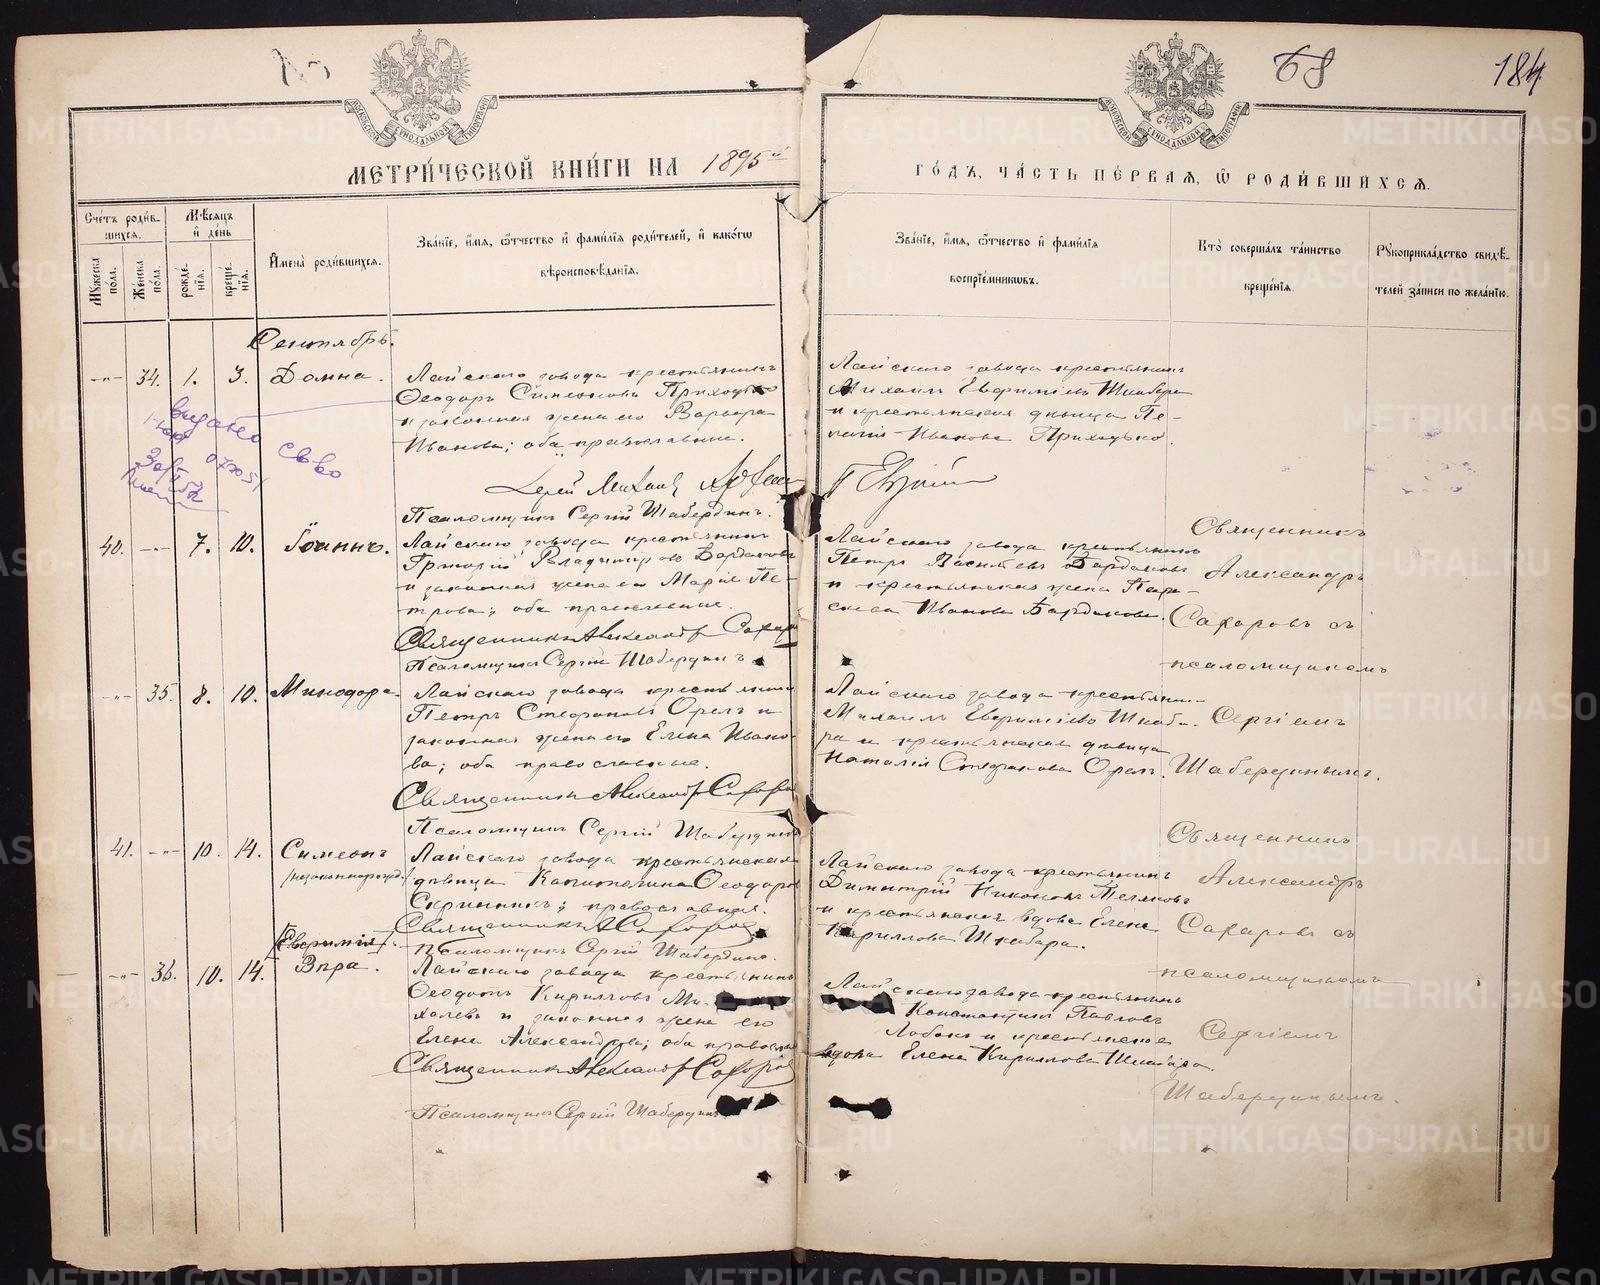 68
184
МОСКОВСКОЙ СѴНОДАЛЬНОЙ ТИПОГРАФІИ
МОСКОВСКОЙ СѴНОДАЛЬНОЙ ТИПОГРАФІИ
МЕТРИ́ЧЕСКОЙ КНИ́ГИ НА 1895й
ГО́ДЪ, ЧА́СТЬ ПЕ́РВАѦ, Ѡ҆ РОДИ́ВШИХСѦ.
Сче́тъ роди́вшихсѧ.
Мꙋ́жеска по́ла.
Же́нска по́ла.
Мѣ́сѧцъ и҆ де́нь
рожде́нїѧ.
креще́нїѧ.
И҆мена̀ роди́вшихсѧ.
Зва́нїе, и҆́мѧ, ѻ҆́тчество и҆ фами́лїѧ роди́телей, и҆ како́гѡ
вѣроисповѣ́данїѧ.
Зва́нїе, и҆́мѧ, ѻ҆́тчество и҆ фами́лїѧ
воспрїе́мникѡвъ.
Кто̀ соверша́лъ та́инство
креще́нїѧ.
Рꙋкоприкла́дство свидѣ́-
телей за́писи по жела́нїю.
Сентябрь.
34. 1. 3. Домна.
Лайскаго завода крестьянинъ
Ѳеодоръ Симеоновъ Приходько
и законная жена его Варвара
Иванова; оба православные.
Лайскаго завода крестьянинъ
Михаилъ Евфиміевъ Шкабара
и крестьянская дѣвица Пе-
лагія Иванова Приходько.
выдано св-во
Псаломщикъ Сергій Шабердинъ.
40. 7. 10. Іоаннъ.
Лайскаго завода крестьянинъ
Григорій Владиміровъ Бардаковъ
и законная жена его Марія Пе-
трова; оба православные.
Священникъ Александръ Сахаровъ
Псаломщикъ Сергій Шабердинъ
Лайскаго завода крестьянинъ
Петръ Васильевъ Бардаковъ
и крестьянская жена Пара-
скева Иванова Бардакова.
Священникъ
Александръ
Сахаровъ съ
псаломщикомъ
Сергіемъ
Шабердинымъ.
35. 8. 10. Минодора.
Лайскаго завода крестьянинъ
Петръ Стефановъ Орелъ и
законная жена его Елена Ивано-
ва; оба православные.
Священникъ Александръ Сахаровъ
Псаломщикъ Сергій Шабердинъ
Лайскаго завода крестьянинъ
Михаилъ Евфиміевъ Шкаба-
ра и крестьянская дѣвица
Наталія Стефанова Орелъ.
41. 10. 14. Симеонъ
/незаконнорожд./
Лайскаго завода крестьянская
дѣвица Капитолина Ѳеодорова
Скринникъ; православная.
Священникъ А Сахаровъ
Псаломщикъ Сергій Шабердинъ.
Лайскаго завода крестьянинъ
Димитрій Никоновъ
и крестьянская вдова Елена
Кириллова Шкабара.
Священникъ
Александръ
Сахаровъ съ
псаломщикомъ
Сергіемъ
Шабердинымъ.
[Евфимія]
36. 10. 14. Вѣра.
Лайскаго завода крестьянинъ
Ѳеодотъ Кирилловъ Ми-
халевъ и законная жена его
Елена Александрова; оба православные
Священникъ Александръ Сахаровъ
Псаломщикъ Сергій Шабердинъ
Лайскаго завода крестьянинъ
Константинъ Павловъ
и крестьянская
вдова Елена Кириллова Шкабара.
METRIKI.GASO-URAL.RU